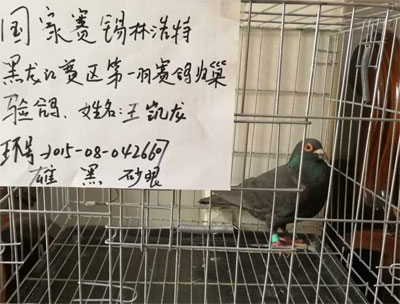 国家赛锡林浩特
黑龙江赛区第一羽赛鸽归巢
验鸽，姓名：王凯龙
环号2015-08-042667
雄 黑 砂眼